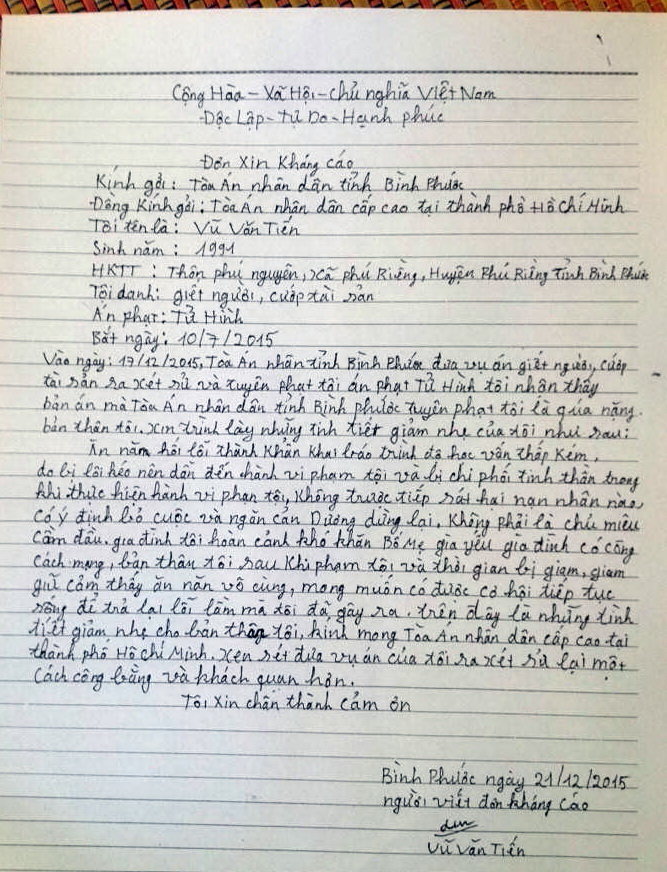 Cộng Hào - Xã Hội - chủ nghĩa Việt Nam
Độc Lập - Tự Do - Hạnh phúc
Đơn Xin Kháng cáo
Kính gởi : Tòa Án nhân dân tỉnh Bình Phước
Đồng Kính gởi : Tòa Án nhân dân cấp cao tại thành phố Hồ Chí Minh
Tôi tên là : Vũ Văn Tiến
Sinh năm : 1991
HKTT : Thôn phú nguyên, xã phú Riềng, Huyện Phú Riềng Tỉnh Bình Phước
Tội danh: giết người, cướp tài sản
Án phạt: Tử Hình
Bắt ngày: 10/7/2015
Vào ngày: 17/12/2015, Tòa Án nhân tỉnh Bình Phước đưa vụ án giết người, cướp
tài sản ra xét sử và tuyên phạt tôi án phạt Tử Hình tôi nhận thấy
bản án mà Tòa Án nhân dân tỉnh Bình phước tuyên phạt tôi là qúa nặng.
bản thân tôi. xin trình lày những tình tiết giảm nhẹ của tôi như sau:
Ăn năn hối lỗi thành Khẩn Khai báo trình độ học vấn thấp Kém,
do bị lôi kéo nên dẫn đến hành vi phạm tội và bị chi phối tinh thần trong
khi thực hiện hành vi phạn tội, Không trước tiếp sát hai nạn nhân nào,
có ý định bỏ cuộc và ngăn cản Dương dừng lại, Không phải là chủ miêu
cầm đầu, gia đình tôi hoàn cảnh khó khăn Bố Mẹ gìa yếu gia đình có công
cách mạng, bản thân tôi sau Khi phạm tội và thời gian bị giam, giam
giữ cảm thấy ăn năn vô cùng, mong muốn có được cơ hội tiếp tục
sống để trả lại lỗi lầm mà tôi đã gây ra. trên đây là những tình
tiết giảm nhẹ cho bản thân tôi, kính mong Tòa Án nhân dân cấp cao tại
thành phố Hồ Chí Minh. xen sét đưa vụ án của tôi ra xét sử lại một
cách công bằng và khách quan hơn.
Tôi Xin chân thành cảm ơn
Bình Phước ngày 21/12/2015
người viết đơn kháng cáo
Vũ Văn Tiến